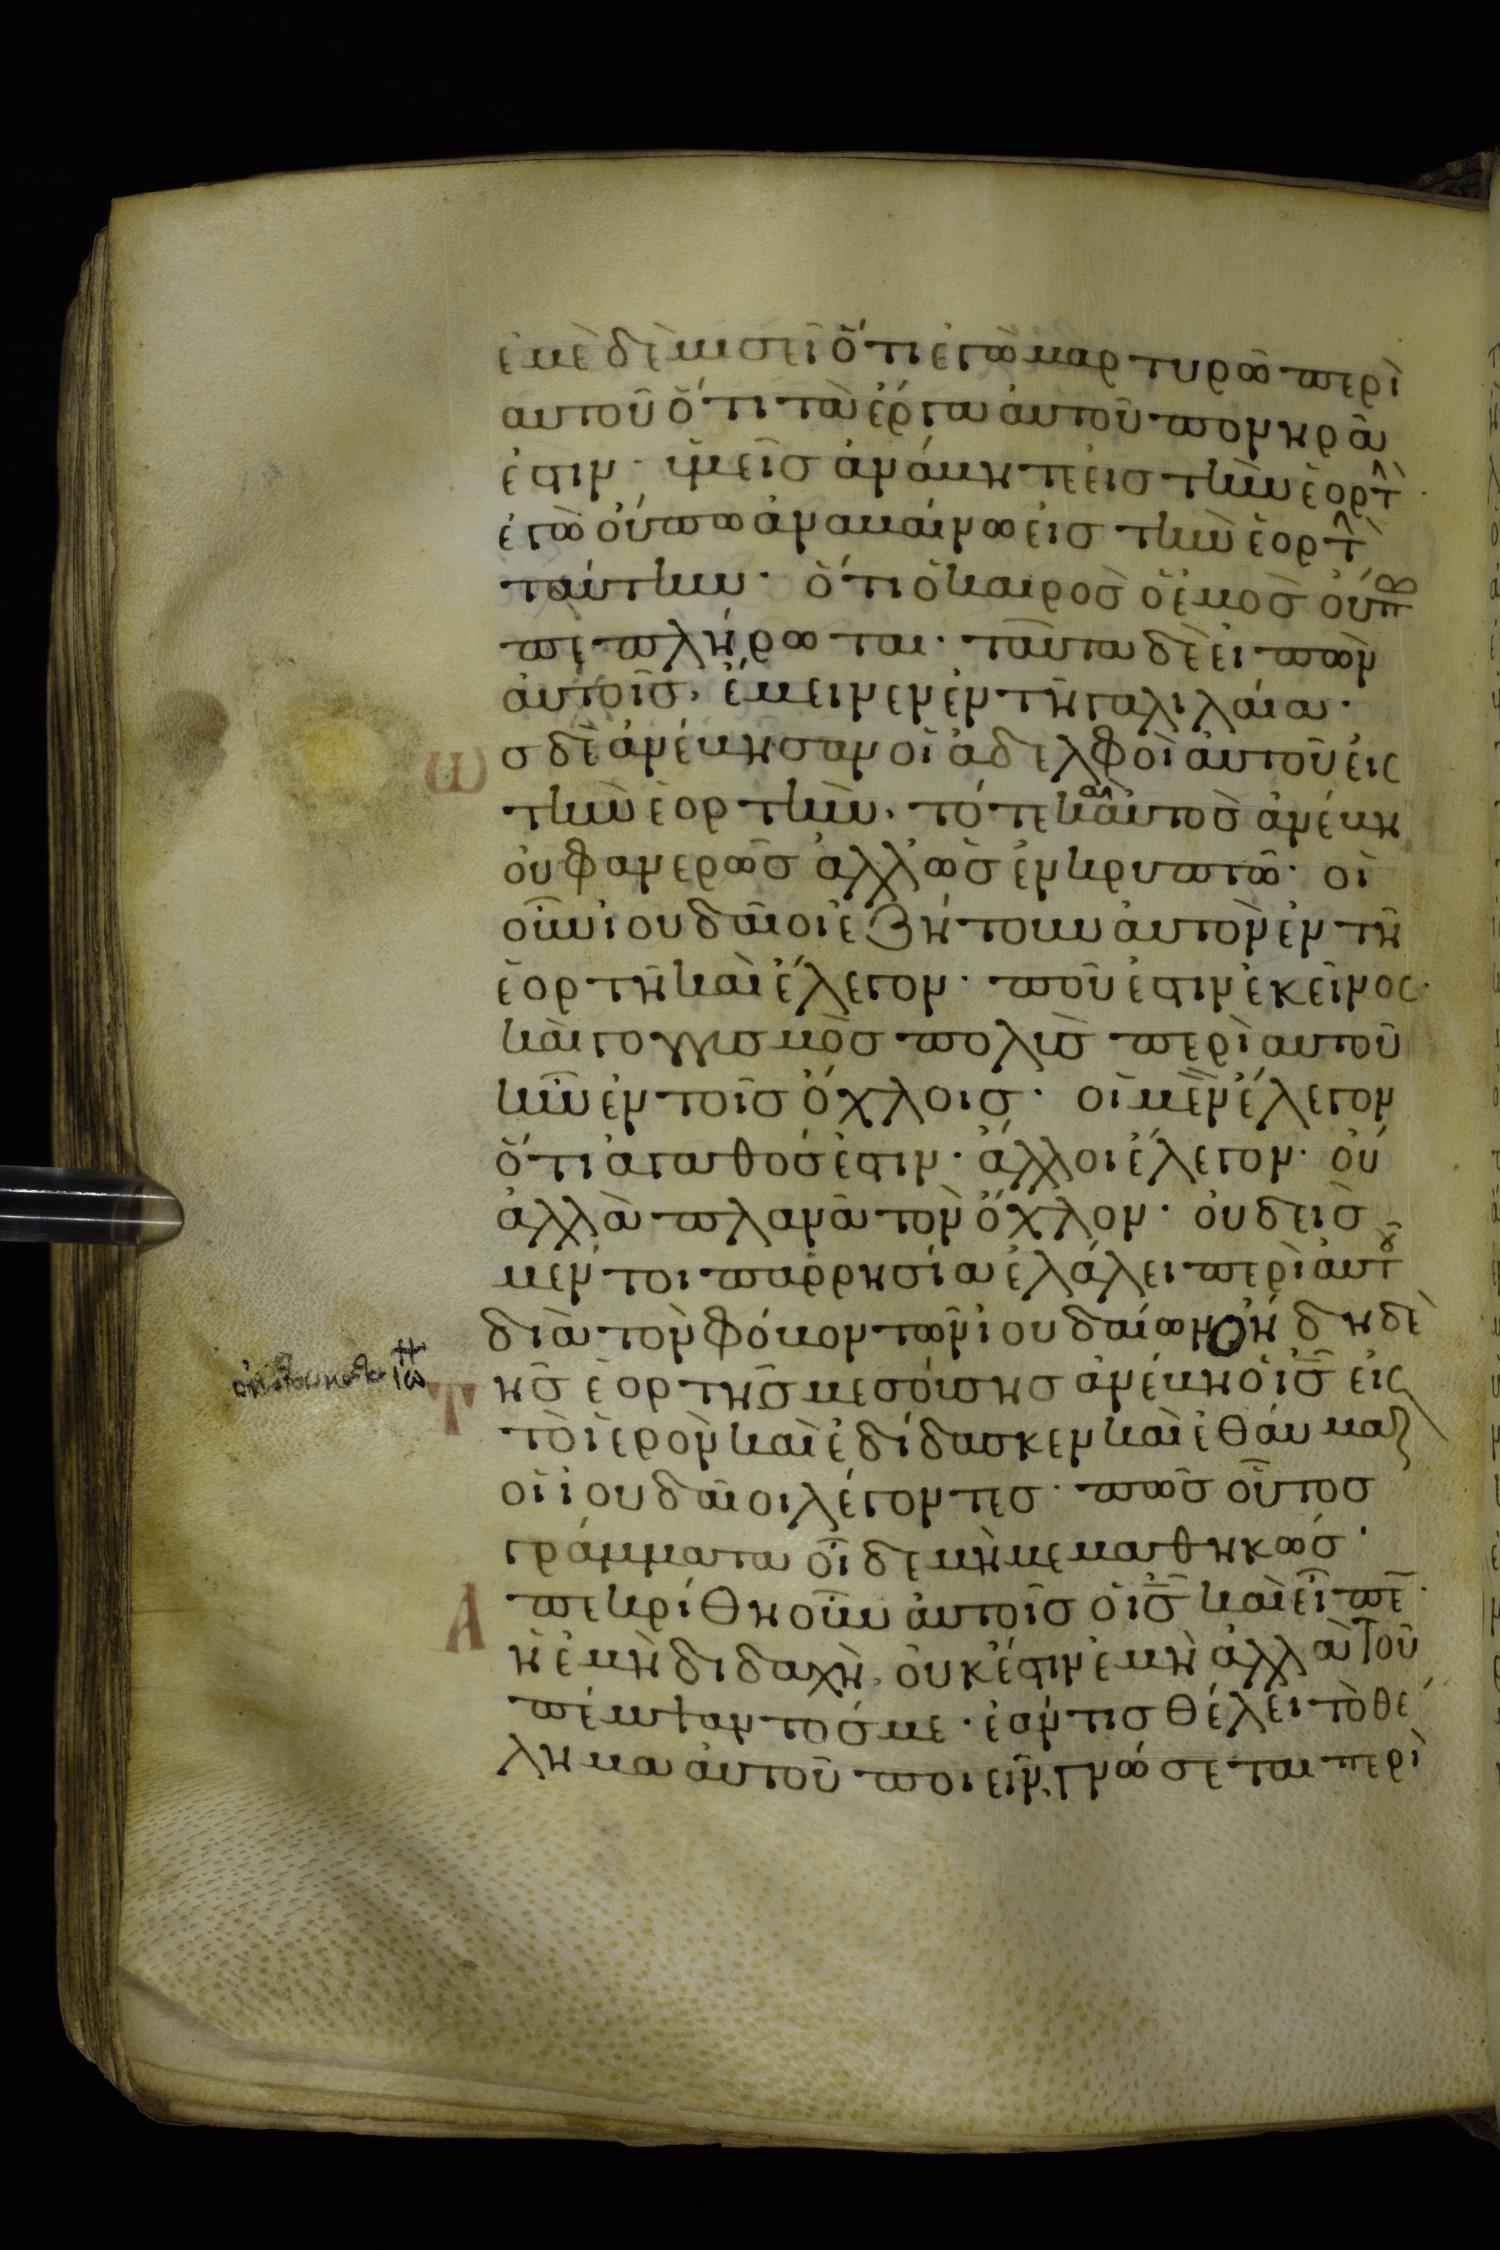 ἐμὲ δὲ μισεῖ ὅτι ἐγὼ μαρτυρῶ περὶ
αυτοῦ ὅτι τὰ ἔργα αὐτοῦ πονηρά
ἐστιν· ὑμεῖς ἀνάβητε εἰς τὴν ἑορτ
ἐγὼ οὔπω ἀναβαίνω εἰς τὴν ἑορτ
ταύτην· ὅτι ὁ καιρὸς ὁ ἐμὸς οὔ
πεπλήρωται· ταῦτα δὲ εἰπὼν
αὐτοῖς, ἔμεινεν ἐν τῇ γαλιλαία·
Ως δὲ ἀνέβησαν οἱ ἀδελφοὶ αὐτοῦ εἰς
τὴν ἑορτὴν, τότε καὶ αὐτὸς ἀνέβη
οὐ φανερῶς ἀλλ' ὡς ἐν κρυπτῷ· οἱ
οὖν ἰουδαῖοι ἐζήτουν αὐτὸν ἐν τῇ
ἑορτῇ καὶ ἔλεγον· ποῦ ἐστιν ἐκεῖνος·
καὶ γογγυσμὸς πολὺς περὶ αυτοῦ
ἦν ἐν τοῖς ὄχλοις· οἱ μὲν ἔλεγον
ὅτι ἀγαθός ἐστιν· ἄλλοι ἔλεγον· οὐ
ἀλλὰ πλανᾷ τὸν ὄχλον· οὐδεὶς
μέντοι παρρησία ἐλάλει περὶ αὐτ
διὰ τὸν φόβον τῶν ἰουδαίων ἤδη δὲ
Τῆς ἑορτῆς μεσούσης ἀνέβη ὁ ις εἰς
τὸ ἱερὸν καὶ ἐδίδασκεν καὶ ἐθαύμαζ
οἱ ἰουδαῖοι λέγοντες· πῶς οὗτος
γράμματα οἶδε μὴ μεμαθηκώς·
Απεκρίθη οὖν αὐτοῖς ὁ ις καὶ εἶπε·
ἡ ἐμὴ διδαχὴ, οὐκ ἔστιν ἐμὴ ἀλλὰ τοῦ
πέμψαντός με· ἐάν τις θέλει τὸ θέ
λημα αὐτοῦ ποιεῖν, γνώσεται περὶ